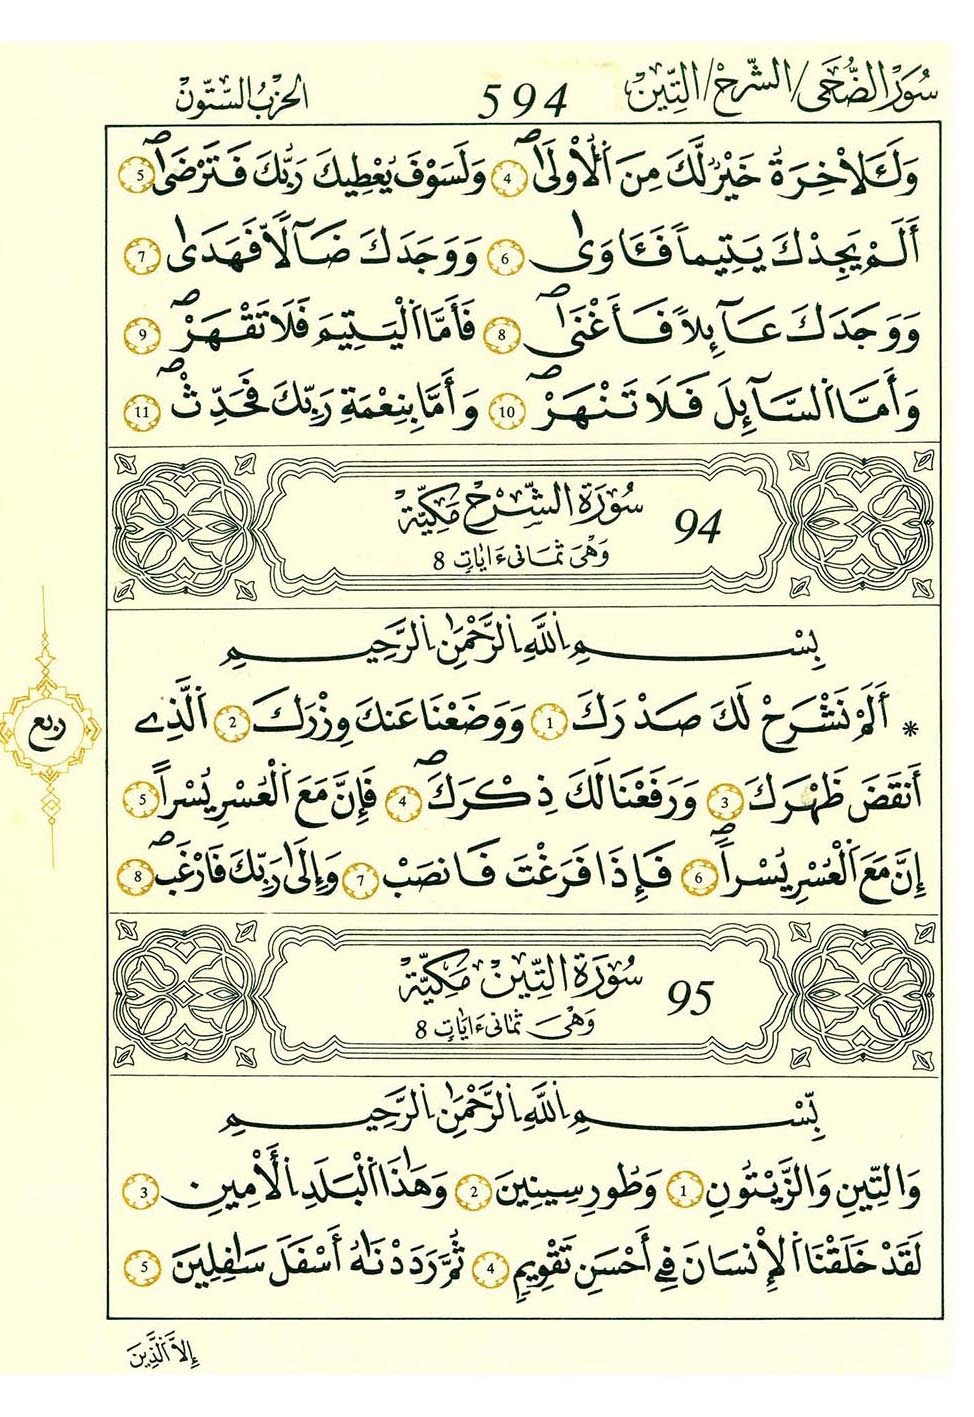 سُورَةُ الضُّحَى/الشَّرْحِ/التِّينِ 594 الحِزْبُ السِّتُّونَ
وَلَلَاخِرَةُ خَيْرٌ لَّكَ مِنَ اَ۬لُاولَىٰۖ 4 وَلَسَوْفَ يُعْطِيكَ رَبُّكَ فَتَرْضَىٰٓۖ 5
أَلَمْ يَجِدْكَ يَتِيماً فَـَٔاوَىٰ 6 وَوَجَدَكَ ضَآلّاً فَهَدَىٰ 7
وَوَجَدَكَ عَآئِلاً فَأَغْنَىٰۖ 8 فَأَمَّا اَ۬لْيَتِيمَ فَلَا تَقْهَرْۖ 9
وَأَمَّا اَ۬لسَّآئِلَ فَلَا تَنْهَرْۖ 10 وَأَمَّا بِنِعْمَةِ رَبِّكَ فَحَدِّثْۖ 11
سُورَةُ الشَّرْحِ مَكِّيَّةٌ 94
وَهْيَ ثَمَانِي ءَايَاتٍ 8
بِسْمِ اِ۬للَّهِ اِ۬لرَّحْمَٰنِ اِ۬لرَّحِيمِ
* أَلَمْ نَشْرَحْ لَكَ صَدْرَكَ 1 وَوَضَعْنَا عَنكَ وِزْرَكَ 2 اَ۬لَّذِے
ربع
أَنقَضَ ظَهْرَكَ 3 وَرَفَعْنَا لَكَ ذِكْرَكَۖ 4 فَإِنَّ مَعَ اَ۬لْعُسْرِ يُسْراً 5
إِنَّ مَعَ اَ۬لْعُسْرِ يُسْراًۖ 6 فَإِذَا فَرَغْتَ فَانصَبْ 7 وَإِلَىٰ رَبِّكَ فَارْغَبۖ 8
سُورَةُ التِّينِ مَكِّيَّةٌ 95
وَهْيَ ثَمَانِي ءَايَاتٍ 8
بِّسْمِ اِ۬للَّهِ اِ۬لرَّحْمَٰنِ اِ۬لرَّحِيمِ
وَالتِّينِ وَالزَّيْتُونِ 1 وَطُورِ سِينِينَ 2 وَهَٰذَا اَ۬لْبَلَدِ اِ۬لَامِينِ 3
لَقَدْ خَلَقْنَا اَ۬لِانسَانَ فِے أَحْسَنِ تَقْوِيمٍ 4 ثُمَّ رَدَدْنَٰهُ أَسْفَلَ سَٰفِلِينَ 5
إِلَّا اَ۬لذِينَ